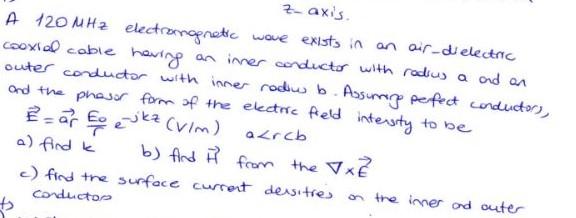 z-axis.
A 120 MHz electromagnetic wave exists in an air-dielectric
coaxial cable having an inner conductor with radius a and an
outer conductor with inner radius b. Assuming perfect conductors,
and the phasor form of the electric field intensity to be
E⃗ = a⃗r E₀/r e^-jkz (V/m) a<r<b
a) find k b) find H⃗ from the ∇×E⃗
c) find the surface current dessities on the inner and outer
conductors